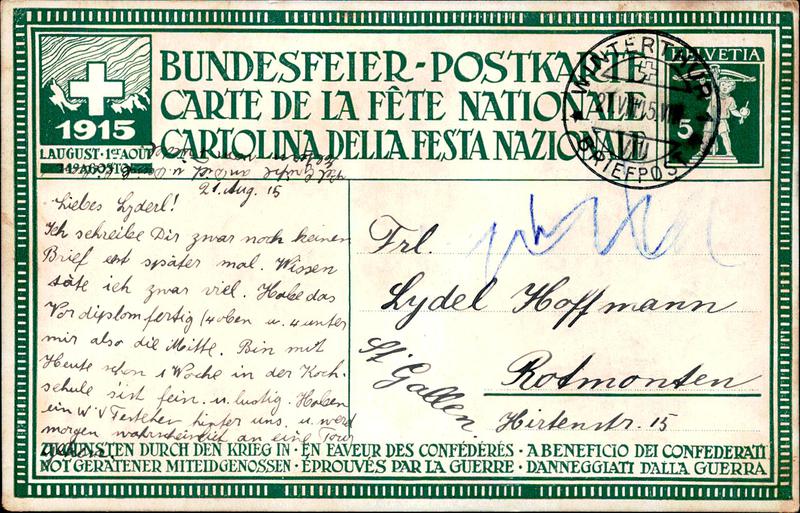 BUNDESFEIER-POSTKARTE
CARTE DE LA FÊTE NATIONALE
CARTOLINA DELLA FESTA NAZIONALE
1915
1. AUGUST · 1ER AOÛT
1º AGOSTO
HELVETIA
5
WINTERTHUR 1
BRIEFPOST
21. Aug. 15
Liebes Lyderl!
Ich schreibe Dir zwar noch keinen
Brief erst später mal. Wissen
täte ich zwar viel. Habe das
Vordiplom fertig (4 oben u. 4 unter
mir also die Mitte. Bin mit
Heute schon 1 Woche in der Koch-
schule s'ist fein. u. lustig. Haben
ein W.V.
hinter uns. u. werd
morgen wahrscheinlich an eine Tour
Frl.
Lydel Hoffmann
St. Gallen
Rotmonten
Hirtenstr. 15
ZUGUNSTEN DURCH DEN KRIEG IN · EN FAVEUR DES CONFÉDÉRÉS · A BENEFICIO DEI CONFEDERATI
NOT GERATENER MITEIDGENOSSEN · ÉPROUVÉS PAR LA GUERRE · DANNEGGIATI DALLA GUERRA